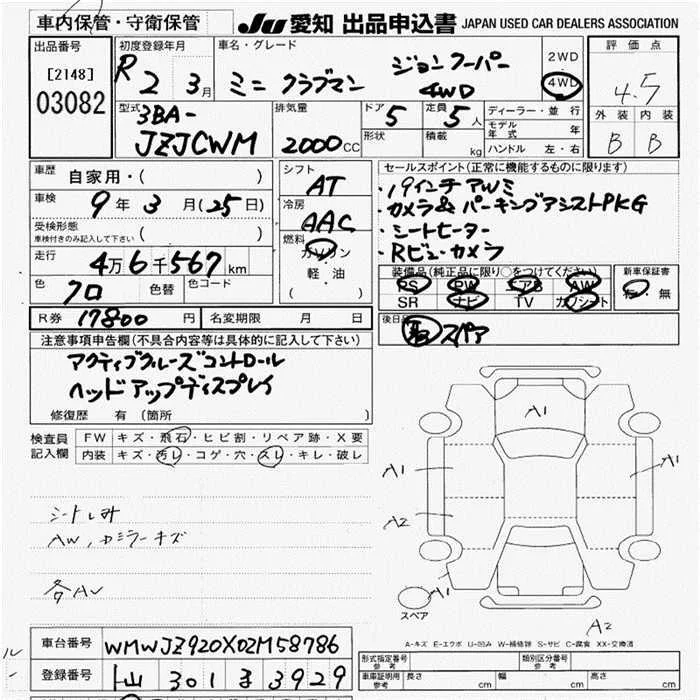 車内保管・守衛保管 JU 愛知 出品申込書 JAPAN USED CAR DEALERS ASSOCIATION
出品番号 初度登録年月 車名・グレード 2WD 評価点
[2148] R2 3月 ミニ クラブマン ジョンクーパー 4WD 4WD 4.5
03082
型式 排気量 ドア 定員 ディーラー・並行 外装 内装
3BA-JZJCWM 2000CC 5 5人 モデル年式 年 B B
形状 積載 kg ハンドル 左・右
車歴 自家用・( ) シフト AT セールスポイント(正常に機能するものに限ります)
車検 9年3月(25日) 冷房 AAC ・19インチAWミ
受検形態 車検付きのみ記入して下さい ( ) ・カメラ&パーキングアシストPKG
燃料 ガソリン ・シートヒーター
走行 4万6千567km 軽・油 ・Rビューカメラ
色 クロ 色替 色コード ( ) 装備品(純正品に限り○をつけてください) 新車保証書
PS PW エアB AW 有・無
SR ナビ TV カワシート
R券 17800円 名変期限 月 日 後日品 スペア
注意事項申告欄(不具合内容等は具体的に記入して下さい)
アクティブクルーズコントロール
ヘッドアップディスプレイ
修復歴 有(箇所 )
検査員記入欄 FW キズ・飛石・ヒビ割・リペア跡・X要
内装 キズ・汚レ・コゲ・穴・スレ・キレ・破レ
A1
A1 A1
A2
シートしみ
AW,カミラーキズ
各AU
A1
スペア
A2
A-キズ E-エクボ U-凹み W-補修跡 S-サビ C-腐食 XX-交換済
車台番号 WMWJZ920X02M58786
登録番号 301 3929
形式指定番号 参考 類別区分番号 参考
車庫証明用 参考 長さ cm 幅 cm 高さ cm